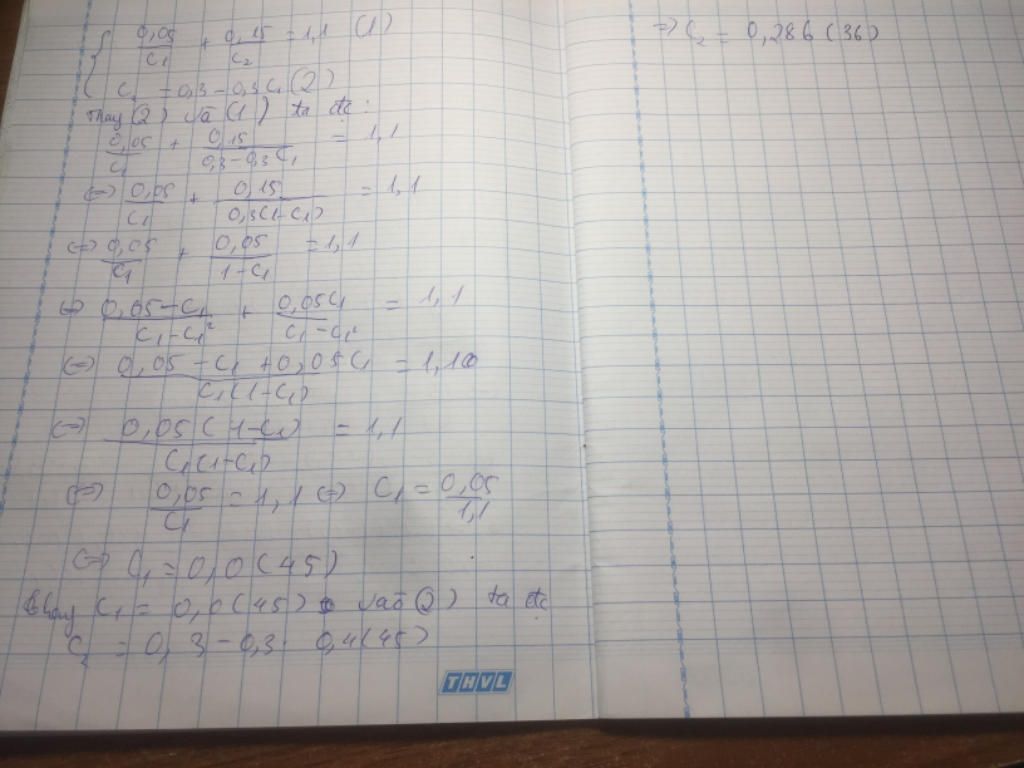 0,05/C₁ + 0,15/C₂ = 1,1 (1)
C₂ = 0,3 - 0,3C₁ (2)
Thay (2) vaò (1) ta đc:
0,05/C₁ + 0,15/(0,3 - 0,3C₁) = 1,1
⇔ 0,05/C₁ + 0,15/(0,3(1-C₁)) = 1,1
⇔ 0,05/C₁ + 0,05/(1-C₁) = 1,1
⇔ (0,05 - C₁)/(C₁ - C₁²) + 0,05C₁/(C₁ - C₁²) = 1,1
⇔ (0,05 - C₁ + 0,05C₁)/(C₁(1-C₁)) = 1,1
⇔ 0,05(1-C₁)/(C₁(1-C₁)) = 1,1
⇔ 0,05/C₁ = 1,1 ⇔ C₁ = 0,05/1,1
⇔ C₁ = 0,0(45)
thay C₁ = 0,0(45) vaò (2) ta đc
C₂ = 0,3 - 0,3. 0,4(45)
THVL
⇒ C₂ = 0,286(36)